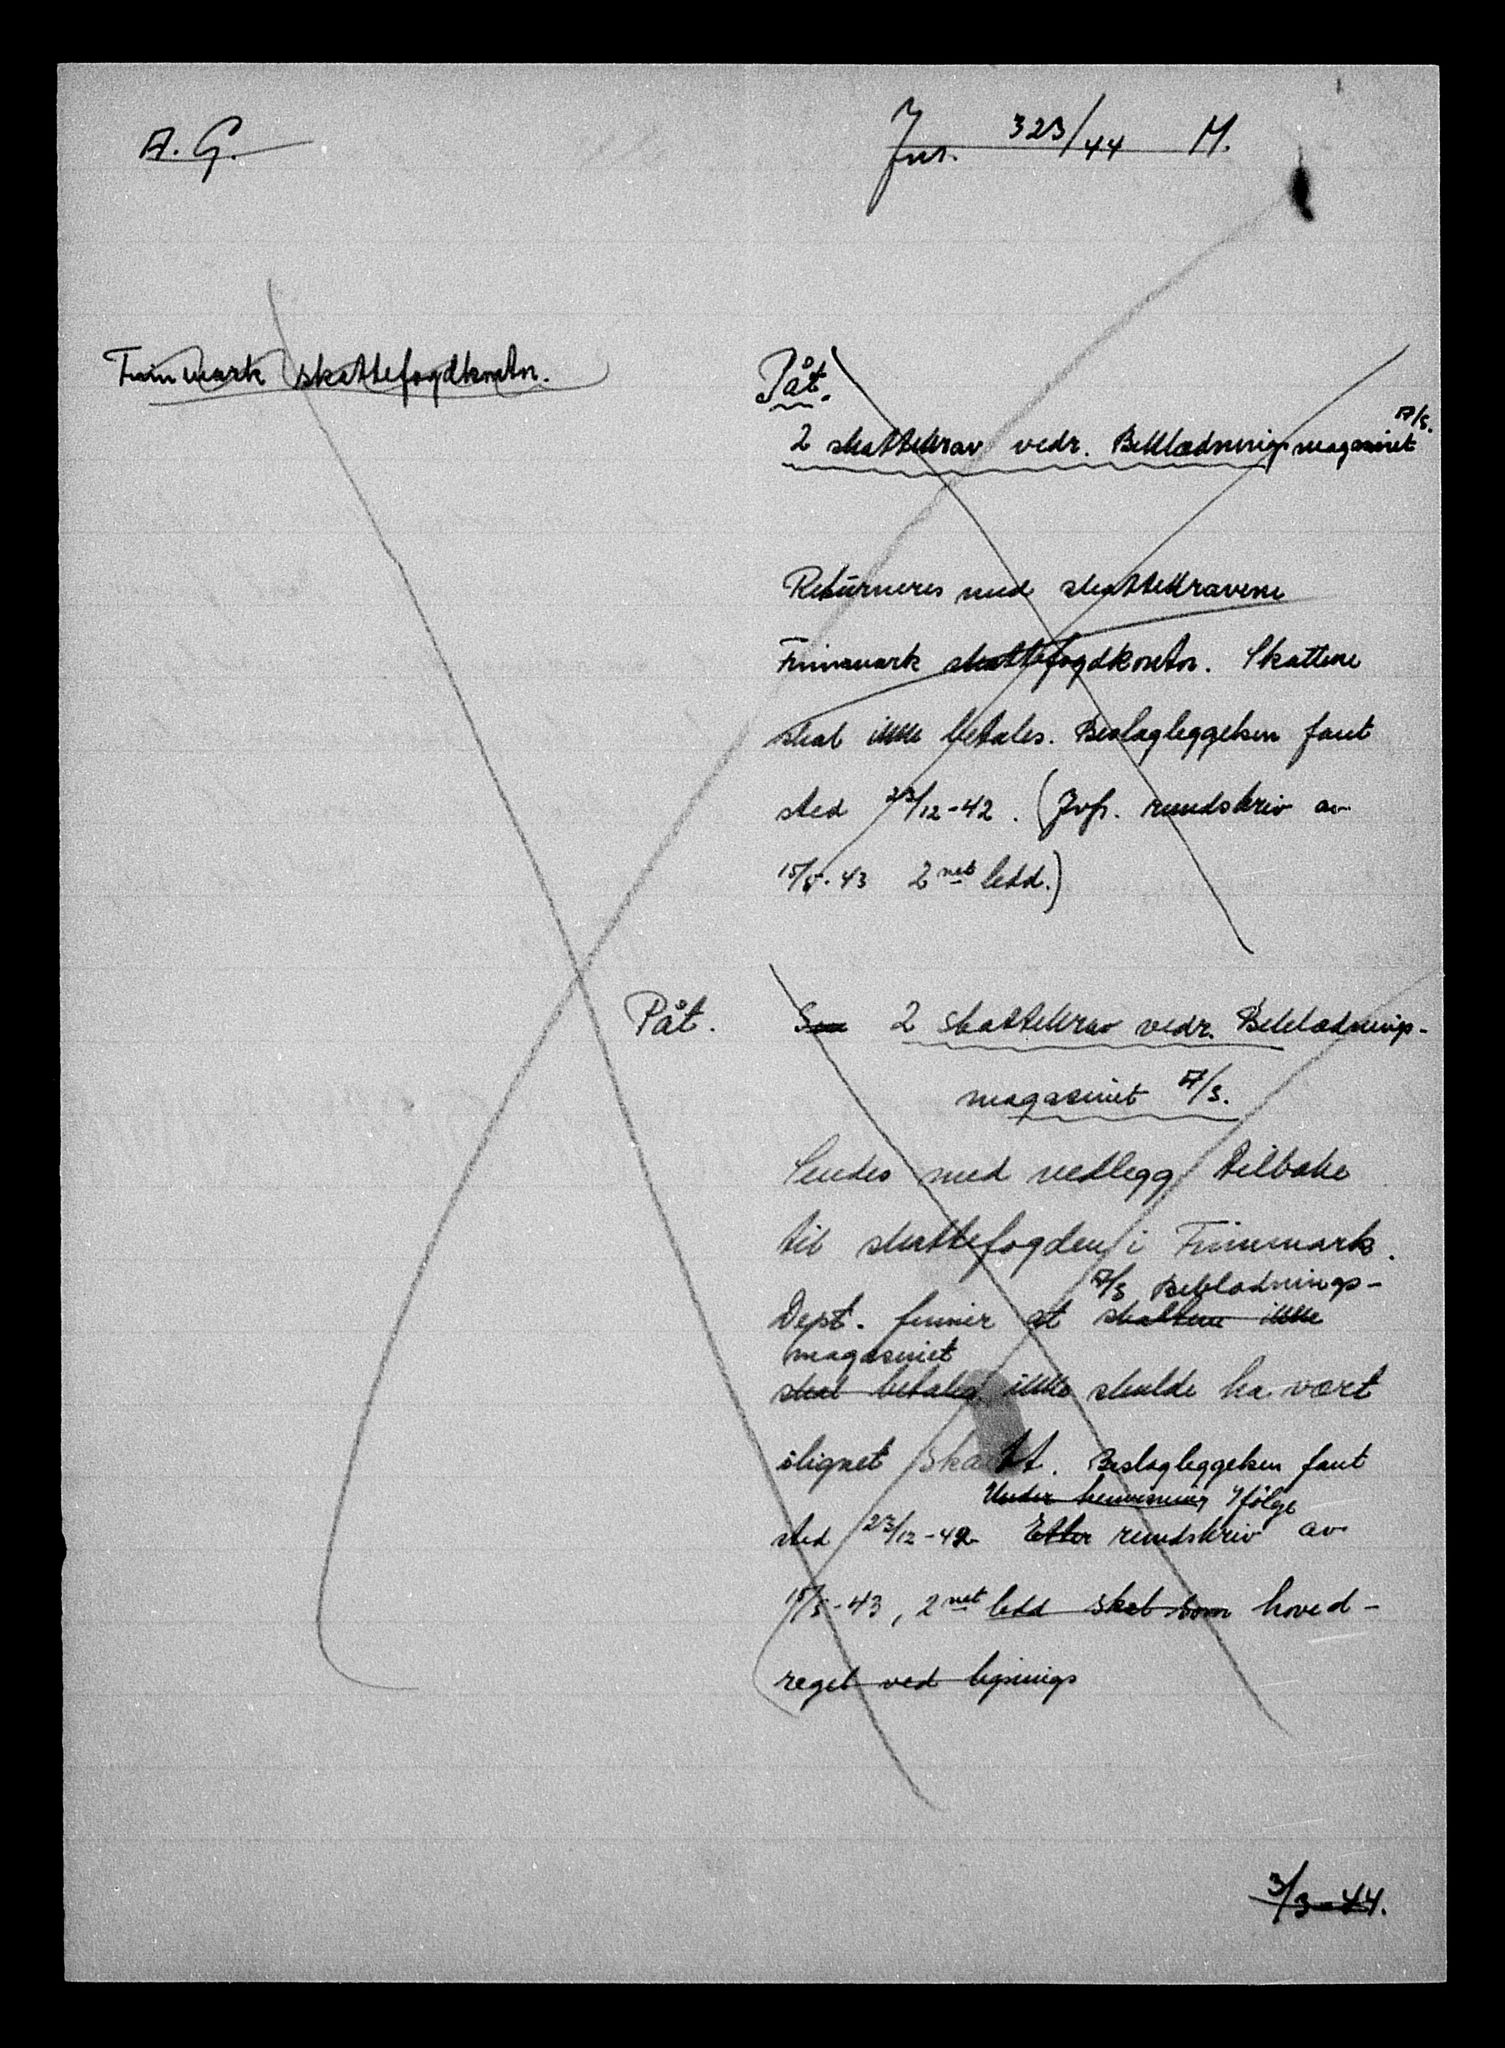 A. G.
Jnr. 323/44 M.
Finnmark skattefogdkontor.
Påt.
2 skattekrav vedr. Beklædningsmagasinet A/S.
Returneres med skattekravene
Finnmark skattefogdkontor. Skattene
skal ikke betales. Beslagleggelsen fant
sted 23/12-42. (Jvfr. rundskriv av
15/5-43 2net ledd.)
Påt. Som 2 skattekrav vedr. Beklædnings-
magasinet A/S.
Sendes med vedlegg tilbake
til skattefogden i Finnmark.
A/S Beklædnings-
Dept. finner at skattene ikke
magasinet
skal betales ikke skulde ha vært
ilignet skatt. Beslagleggelsen fant
Under henvisning Ifölge
sted 23/12-42 Etter rundskriv av
15/5-43, 2net ledd skal som hoved-
regel ved lignings
3/3-44.